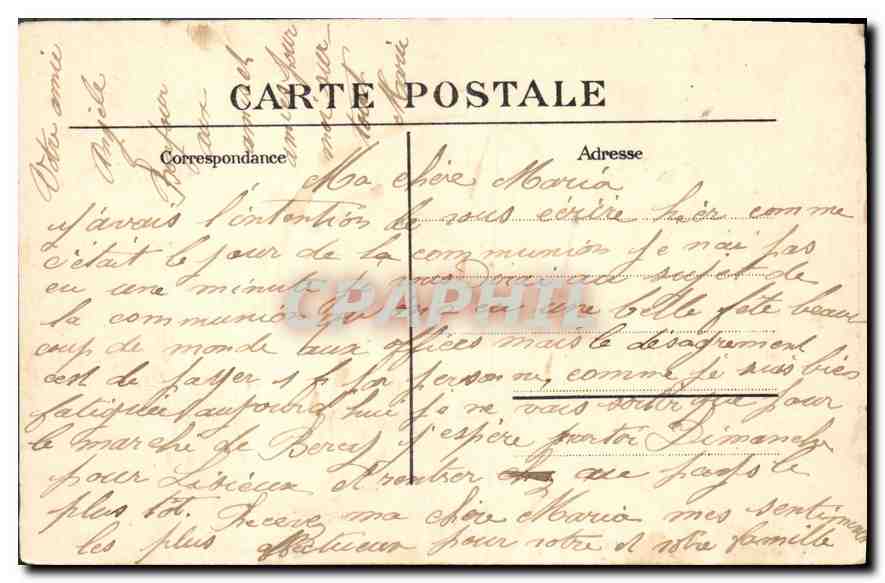 CARTE POSTALE
Correspondance
Adresse
Ma chère Maria
j'avais l'intention de vous écrire hier comme
c'était le jour de la communion je n'ai pas
eu une minute au sujet de
la communion une belle fête beau
coup de monde aux offices mais le désagrement
c'est de payer 1 f par personne, comme je suis bien
fatiguée aujourd'hui je ne vais sortir que pour
le marché de Bercy j'espère partir Dimanche
pour Lisieux et rentrer au pays le
plus tôt. Recevez ma chère Maria mes sentiments
les plus affectueux pour votre et votre famille
Votre amie
Angèle
Bonjour
aux
amis et
amies pour
ma sœur
Marie
CPAPHIL